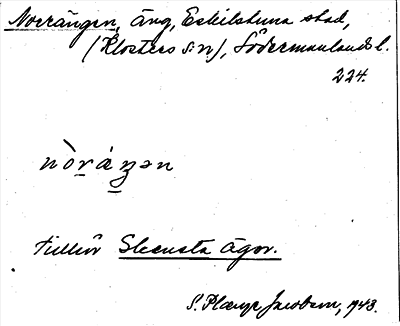 Norängen, äng, Eskilstuna stad,
(Klosters s:n), Södermanlands l.
224.
nòṟáṉən
Tillhör Slevsta ägor.
S. Plænge Jacobson, 1943.